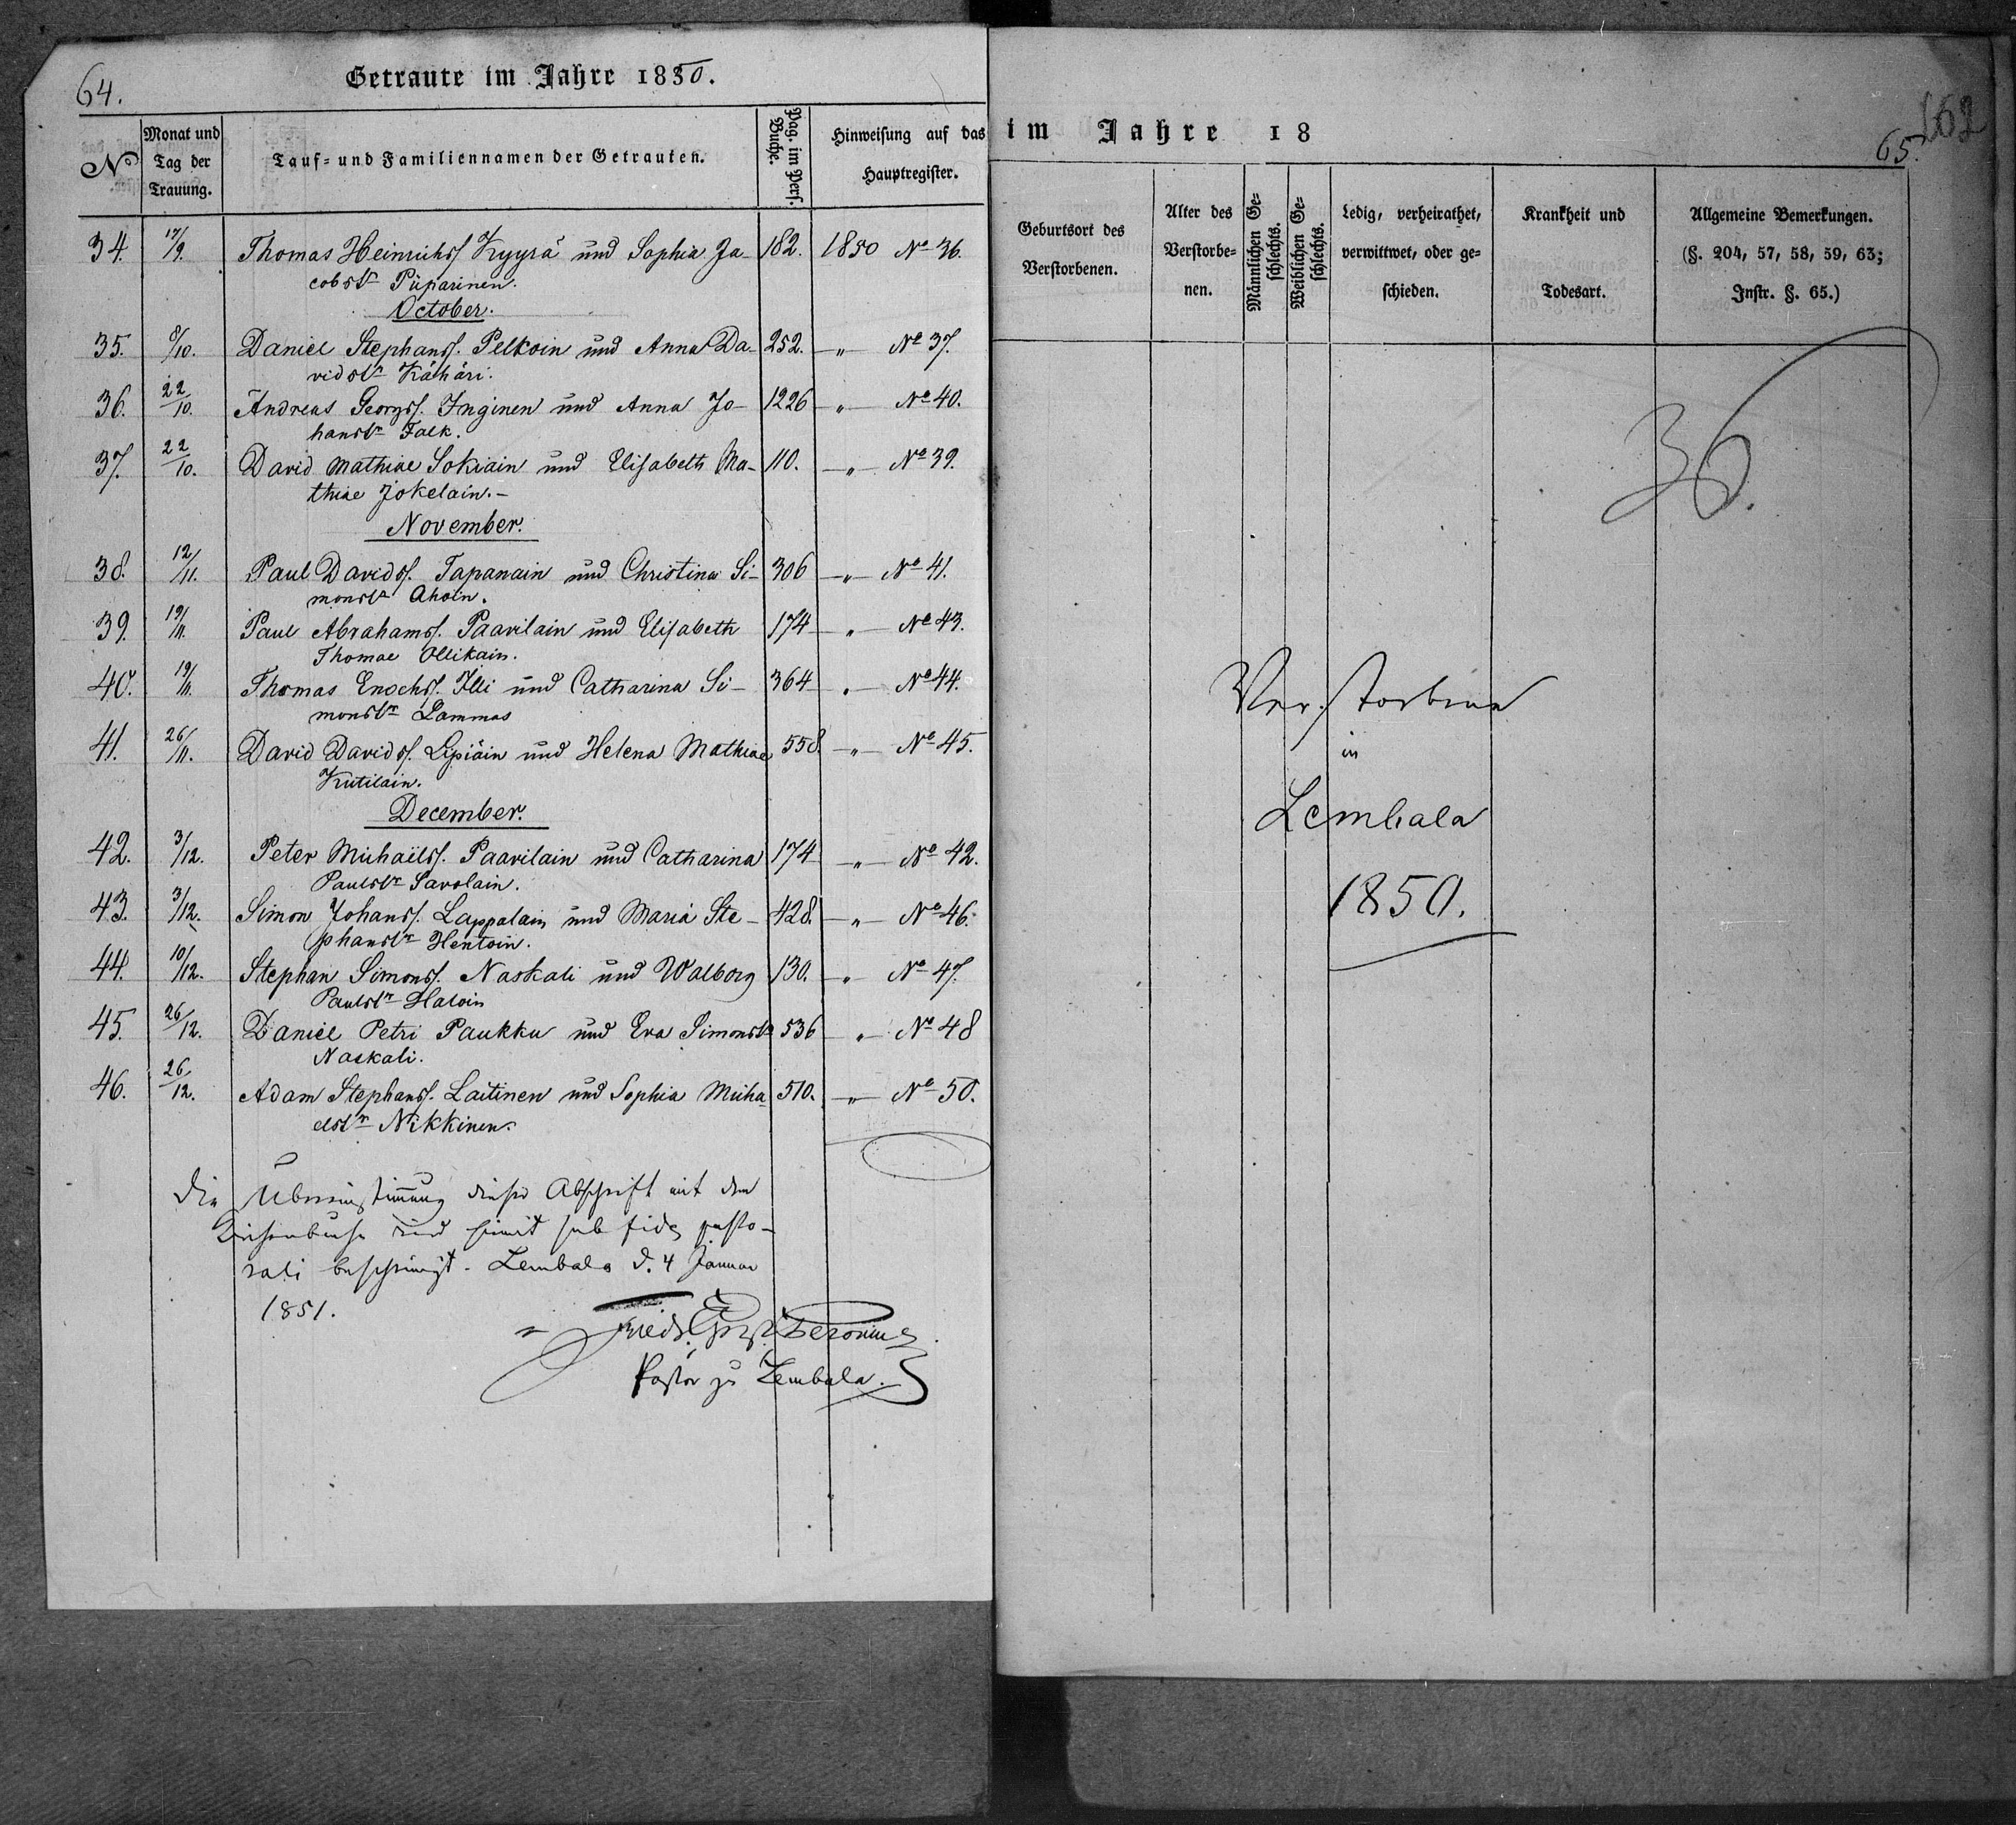 64.
Getraute im Jahre 1850.
№
Monat und
Tag der
Trauung.
Tauf- und Familiennamen der Getrauten.
Pag. im Pers.
Buche.
Hinweisung auf das
Hauptregister.
34. 17/9. Thomas Heinrichs. Kyyrä und Sophia Ja- 182. 1850 No 36.
cobstr Piiparinen.
October.
35. 8/10. Daniel Stephans. Pelkoin und Anna Da- 252. —„— No 37.
vidstr Kähäri.
36. 22/10. Andreas Georgs. Inginen und Anna Jo- 1226 —„— No 40.
hanstr Falk.
37. 22/10. David Mathiae Sokiain und Elisabeth Ma- 110. —„— No 39.
thiae Jokelain.-
November.
38. 12/11. Paul Davids. Tapanain und Christina Si- 306 —„— No 41.
monstr Ahoin.
39. 19/11. Paul Abrahams. Paavilain und Elisabeth 174 —„— No 43.
Thomae Ollikain.
40. 19/11. Thomas Enochs. Illi und Catharina Si- 364 —„— No 44.
monstr Lammas
41. 26/11. David Davids. Lipiäin und Helena Mathiae 558. —„— No 45.
Kutilain.
December.
42. 3/12. Peter Michaëls. Paavilain und Catharina 174 —„— No 42.
Paulstr Savolain.
43. 3/12. Simon Johans. Lappalain und Maria Ste- 428. —„— No 46.
phanstr Hentoin.
44. 10/12. Stephan Simons. Naskali und Walborg 130. —„— No 47.
Paulstr Haloin
45. 26/12. Daniel Petri Paukku und Eva Simonstr 536 —„— No 48
Naskali.
46. 26/12. Adam Stephans. Laitinen und Sophia Micha- 510. —„— No 50.
elstr Nikkinen.
Die Übereinstimmung dieser Abschrift mit dem
Kirchenbuche wird hiemit sub fide pasto-
rali bescheinigt. Lembala d. 4 Januar
1851.
Pastor zu Lembala.
im Jahre 18
162
65.
Geburtsort des
Verstorbenen.
Alter des
Verstorbe-
nen.
Männlichen Ge-
schlechts.
Weiblichen Ge-
schlechts.
Ledig, verheirathet,
verwittwet, oder ge-
schieden.
Krankheit und
Todesart.
Allgemeine Bemerkungen.
(§. 204, 57, 58, 59, 63;
Instr. §. 65.)
36.
Verstorbene
in
Lembala
1850.